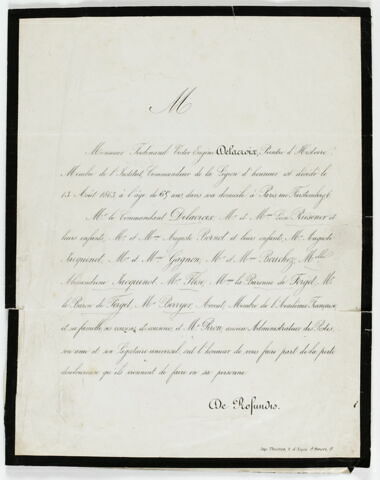 M
Monsieur Ferdinand Victor Eugène Delacroix, Peintre d'Histoire,
Membre de l'Institut, Commandeur de la Légion d'honneur est décédé le
13 Août 1863 à l'âge de 65 ans, dans son domicile à Paris rue Furstenberg 6
Mr le Commandant Delacroix, Mr et Mme Léon Riesener et
leurs enfants, Mr et Mme Auguste Bornot et leurs enfants, Mr Auguste
Jacquinot, Mr et Mme Gagnon, Mr et Mme Bouchez, Mlle
Alexandrine Jacquinot, Mr Mme la Baronne de Forget, Mr
le Baron de Forget, Mr Berryer, Avocat, Membre de l'Académie Française,
et sa famille, ses cousins et cousines, et Mr Piron, ancien Administrateur des Postes,
son ami et son Légataire universel, ont l'honneur de vous faire part de la perte
douloureuse qu'ils viennent de faire en sa personne.
De Profundis.